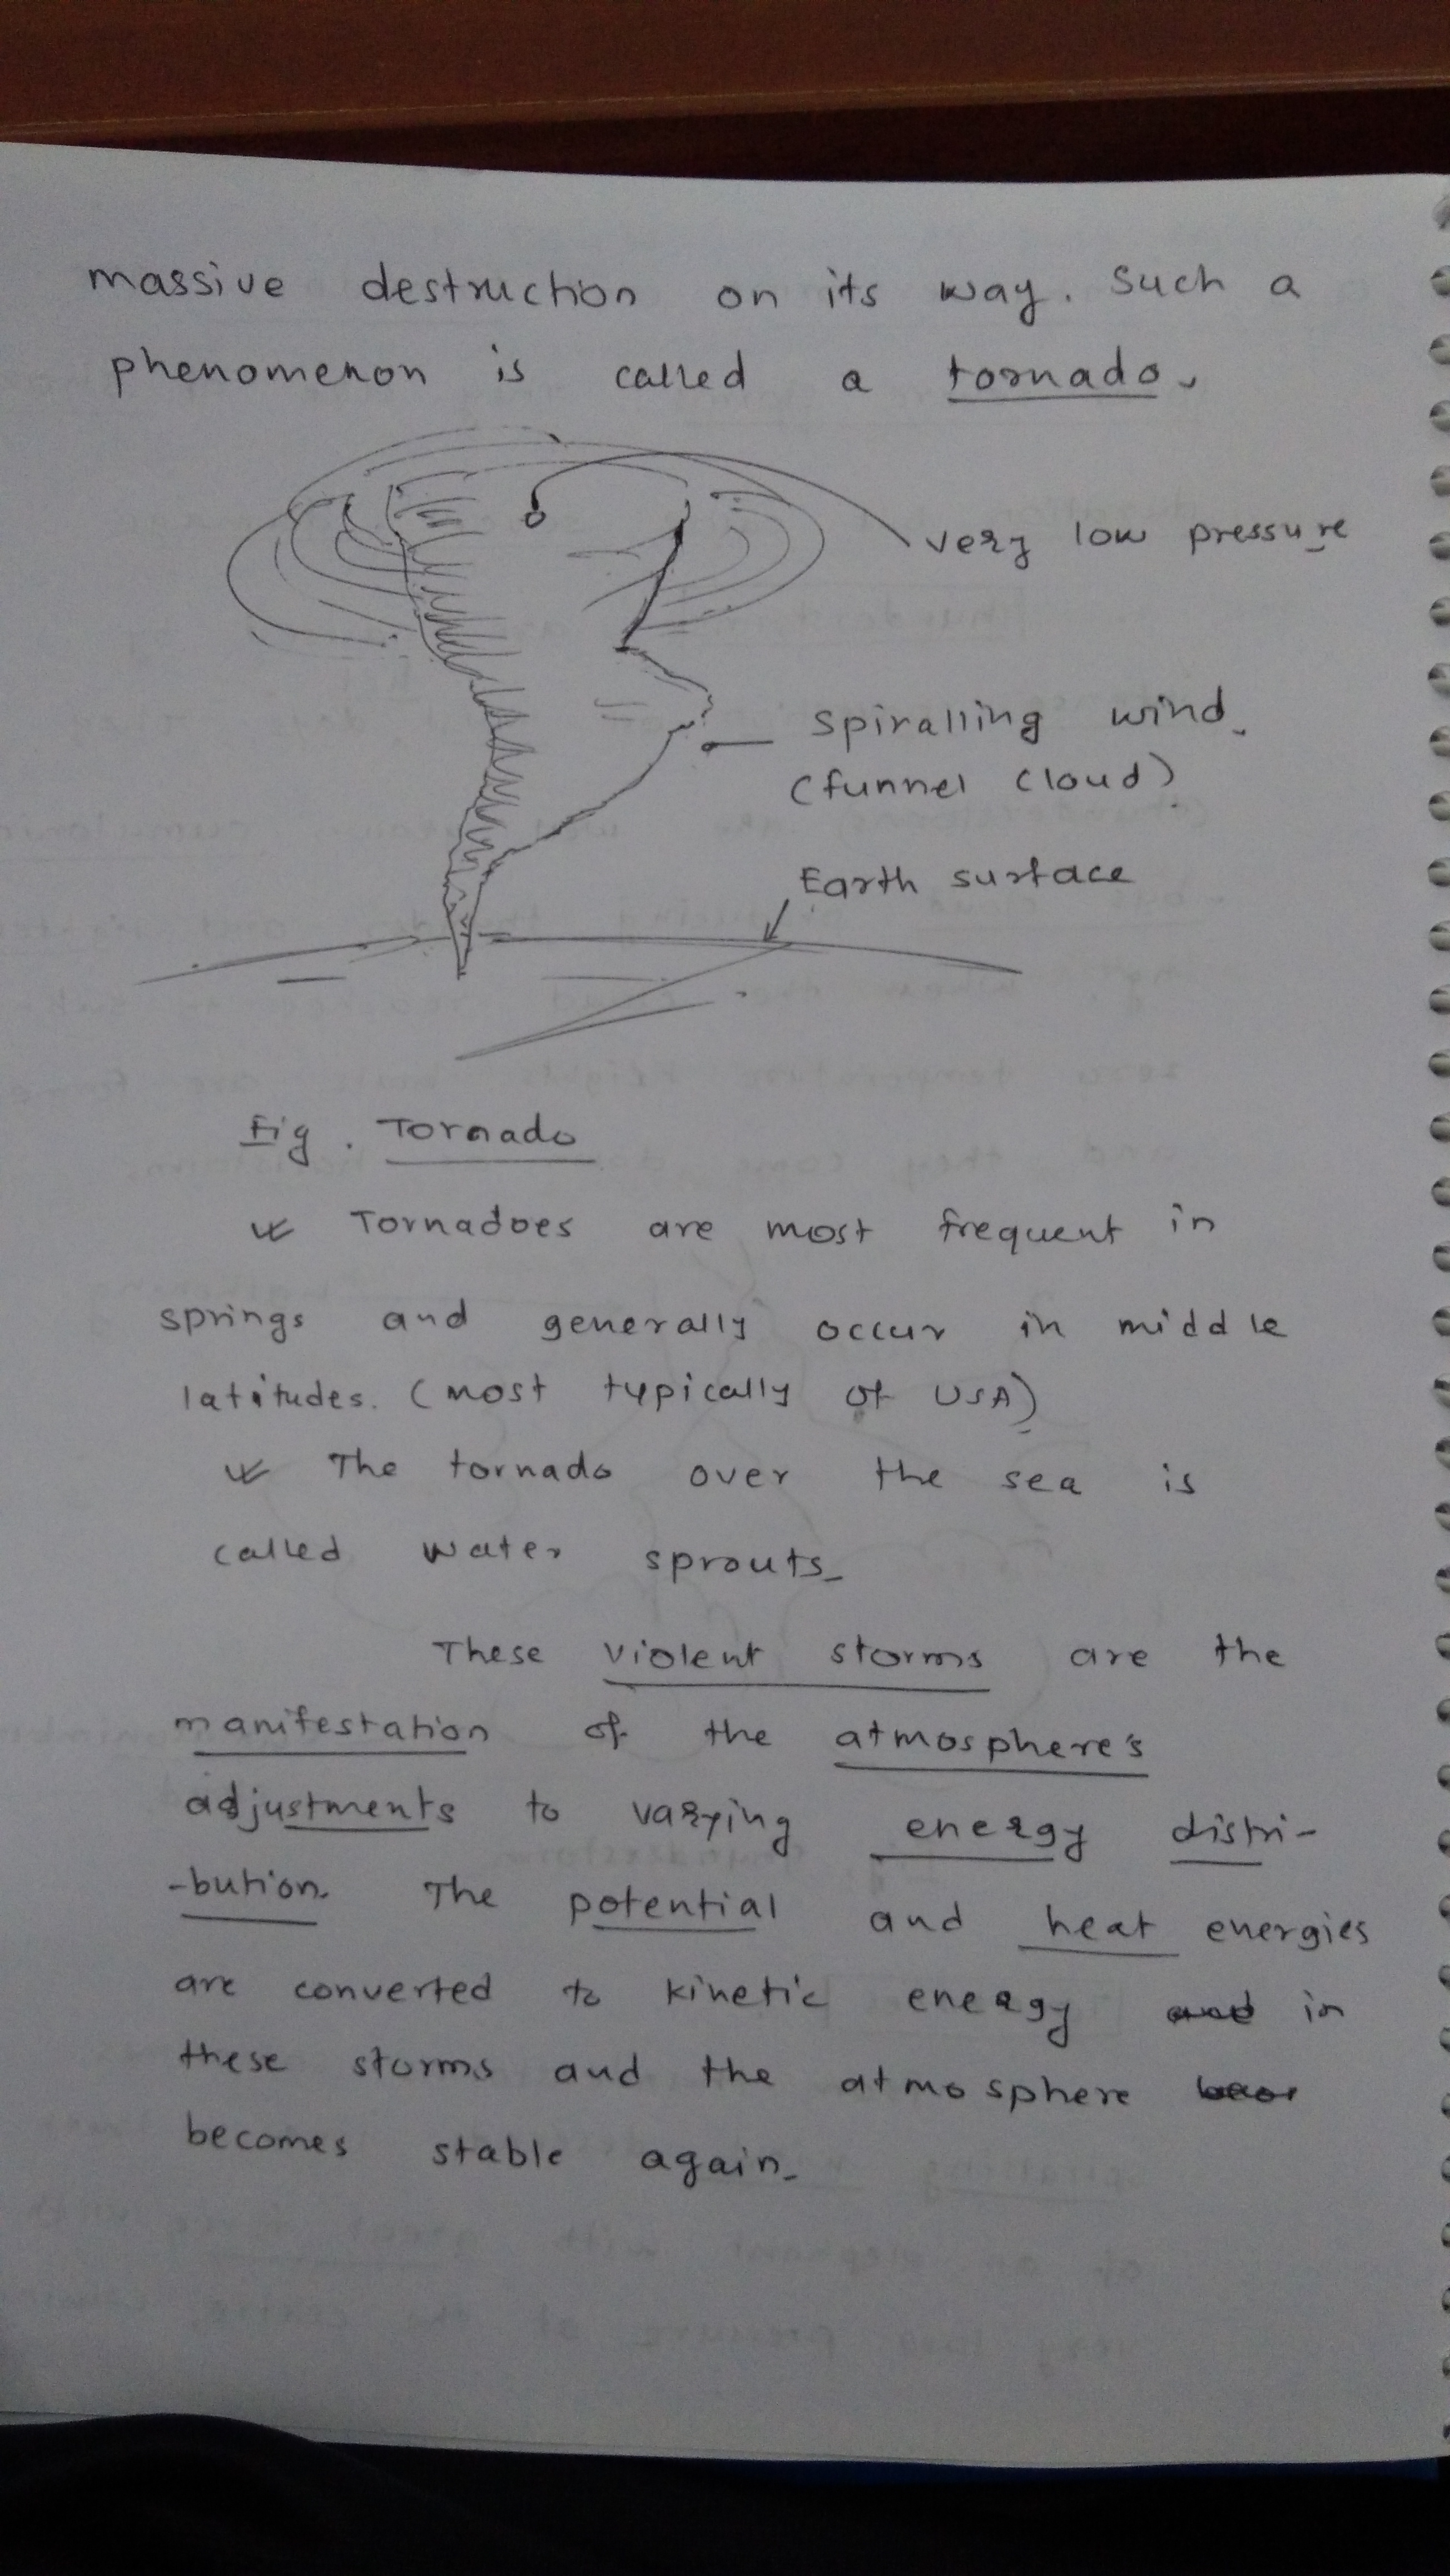 massive destruction on its way. Such a
phenomenon is called a tornado.
very low pressure
spiralling wind.
(funnel cloud)
Earth surface
Fig. Tornado
Tornadoes are most frequent in
springs and generally occur in middle
latitudes. (most typically of USA)
The tornado over the sea is
called water sprouts.
These violent storms are the
manifestation of the atmosphere's
adjustments to varying energy distri-
-bution. The potential and heat energies
are converted to kinetic energy and in
these storms and the atmosphere
becomes stable again.